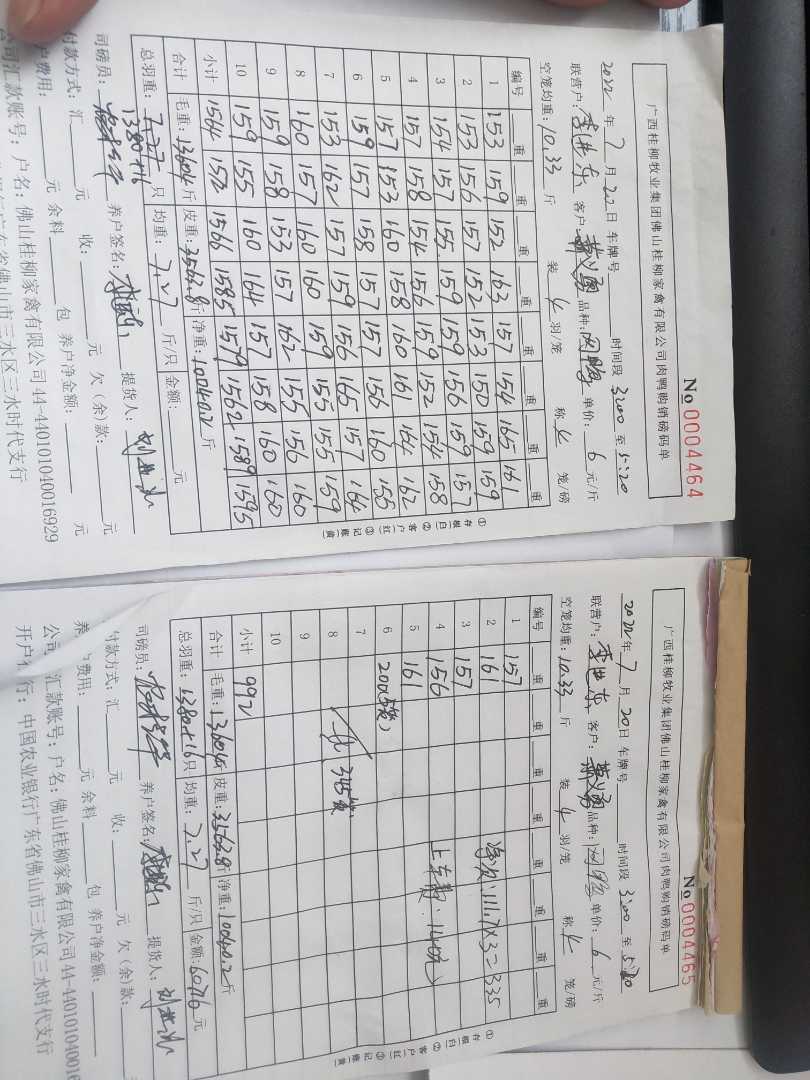 广西桂柳牧业集团佛山桂柳家禽有限公司肉鸭购销磅码单
No 0004464
2022年7月20日 车牌号 时间段 3:00 至 5:20
联营户: 李世东 客户: 品种: 肉鸭 单价: 6 元/斤
空笼均重: 10.33 斤 装 4 羽/笼 称 4 笼/磅
编号 重 重 重 重 重 重 重 重
1 153 159 152 163 157 154 165 161
2 153 156 157 152 153 150 159 159
3 154 157 155 159 159 156 159 157
4 157 158 154 156 159 152 154 158
5 157 153 160 158 160 161 164 162
6 159 157 158 157 157 156 160 155
7 153 162 157 159 156 165 157 164
8 160 157 160 160 159 155 155 159
9 159 158 153 157 162 155 156 160
10 159 155 160 164 157 158 160 160
小计 1564 1572 1566 1585 1579 1562 1589 1595
合计 毛重: 13604 斤 皮重: 3563.8 斤 净重: 10040.2 斤
总羽重: 7.27 只 均重: 7.27 斤/只 金额: 元
1380+16
司磅员: 养户签名: 提货人:
付款方式: 汇 元 收: 元 欠(余)款: 元
户费用: 元 余料 包 养户净金额: 元
公司汇款账号: 户名: 佛山桂柳家禽有限公司 44-440101040016929
银行广东省佛山市三水区三水时代支行
①存根白 ②客户红 ③记账黄
广西桂柳牧业集团佛山桂柳家禽有限公司肉鸭购销磅码单
No 0004465
2022年7月20日 车牌号 时间段 3:00 至 5:20
联营户: 李世东 客户: 品种: 肉鸭 单价: 6 元/斤
空笼均重: 10.33 斤 装 4 羽/笼 称 4 笼/磅
编号 重 重 重 重 重 重 重 重
1 157
2 161 11.17×3=335
3 157
4 156 上车费:
5 161
6 200(5笼)
7
8 共345笼
9
10
小计 992
合计 毛重: 13604 斤 皮重: 3563.8 斤 净重: 10040.2 斤
总羽重: 1380+16 只 均重: 7.27 斤/只 金额: 60716 元
司磅员: 养户签名: 提货人:
付款方式: 汇 元 收: 元 欠(余)款:
养户费用: 元 余料 包 养户净金额:
公司汇款账号: 户名: 佛山桂柳家禽有限公司 44-4401010400169
开户行: 中国农业银行广东省佛山市三水区三水时代支行
①存根白 ②客户红 ③记账黄